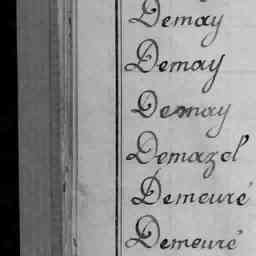 Demay
Demay
Demay
Demazel
Demeuré
Demeuré